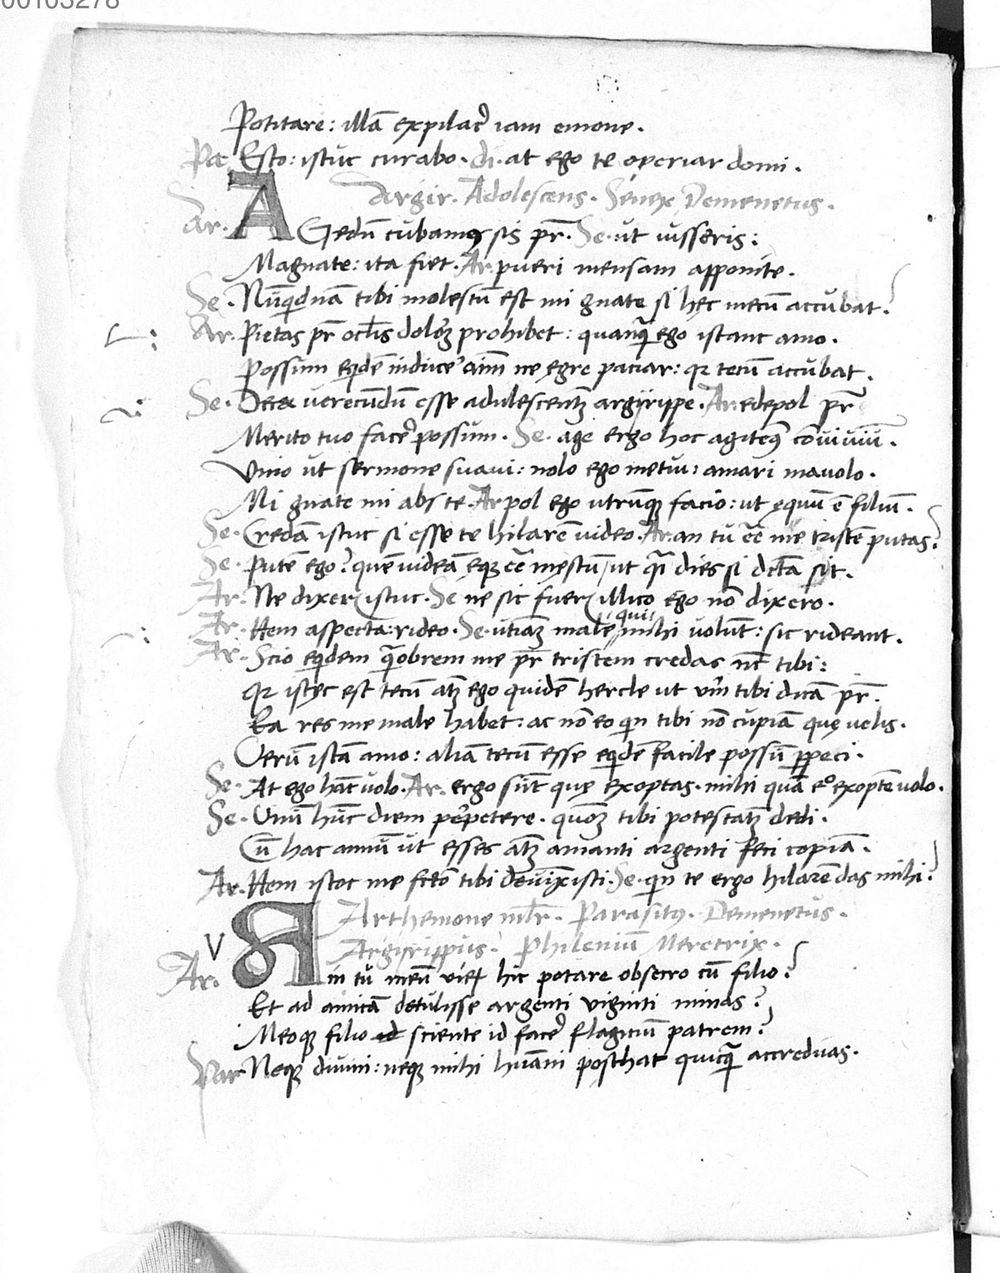 00103278
Potitare: illā expilac̓ iam emone.
Pa Esto: istuc curabo. di. at ego te operiar domi.
Argir. Adolescens. Senex Demenetus.
Ar. AGedū cubamꝰ sis pr̄. Se. ut iusseris:
Magnate: ita fiet. Ar. pueri mensam apponite.
Se. Nūqdnā tibi molestū est mi gnate si hęc mecū accubat?
Ar. Pietas pr̄ oclis dolorꝫ prohibet: quanq̄ ego istanc amo.
Possum eqdē induce᷑ aīm ne ęgre patiar: qꝛ tecū accubat.
Se. Decet verecundū esse adulescentꝫ argirippe. Ar. edepol pr̄
Merito tuo face᷑ possum. Se. age ergo hoc agiteꝰ cōuiuiū.
Vino ut sermone suaui: nolo ego metui: amari mauolo.
Mi gnate mi abs te. Ar. pol ego utrunqꝫ facio: ut equū ē filiū.
Se. Credā istuc si esse te hilarē uideo. Ar. an tu eē me tristē putas?
Se. Putē ego? quē uideā ęqꝫ eē męstū ut q̄i dies si dicta sit.
Ar. Ne dixeris istuc. Se ne sic fueris illico ego nō dixero.
Ar. Hem aspecta: rideo. Se. utinā male qui mihi uolūt: sic rideant.
Ar. Scio eqdem q̄obrem me pr̄ tristem credas nc̄ tibi:
Qꝛ istęc est tecū atqꝫ ego quidē hercle ut verū tibi dicā pr̄.
Ea res me male habet: ac nō eo qn tibi nō cupiā quę uelis.
Verū istā amo: aliā tecū esse eqdē facile possū ꝑpeti.
Se. At ego hāc uolo. Ar. ergo sūt quę exoptas. mihi quā eᵒ exoptē uolo.
Se. Unū hūc diem perpetere. quom̄ tibi potestatꝫ dedi.
Cū hac annū ut esses atqꝫ amanti argenti feci copiā.
Ar. Hem istoc me fcō tibi deuīxisti. Se. qn te ergo hilarē das mihi?
Arthemone mlr. Parasitꝰ. Demenetus.
V Argirippus. Philenium Meretrix.
Ar. AIn tu meū virū hic potare obsecro cū filio?
Et ad amicā detulisse argenti viginti minas?
Meoqꝫ filio sciente id face᷑ flagitiū patrem?
Par Neqꝫ diuini: neqꝫ mihi hūani posthac quicq̄ accreduas.